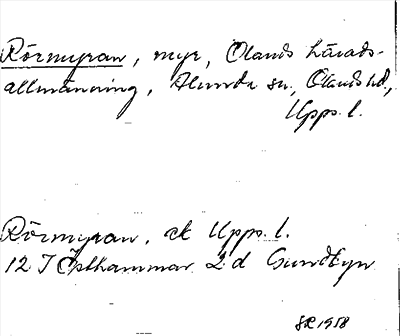 Rörmyran, myr, Olands härads-
allmänning, Alunda sn, Olands hd,
Upps. l.
Rörmyran, ek Upps. l.
12 I Östhammar 2 d Sundbyn
SR 1958